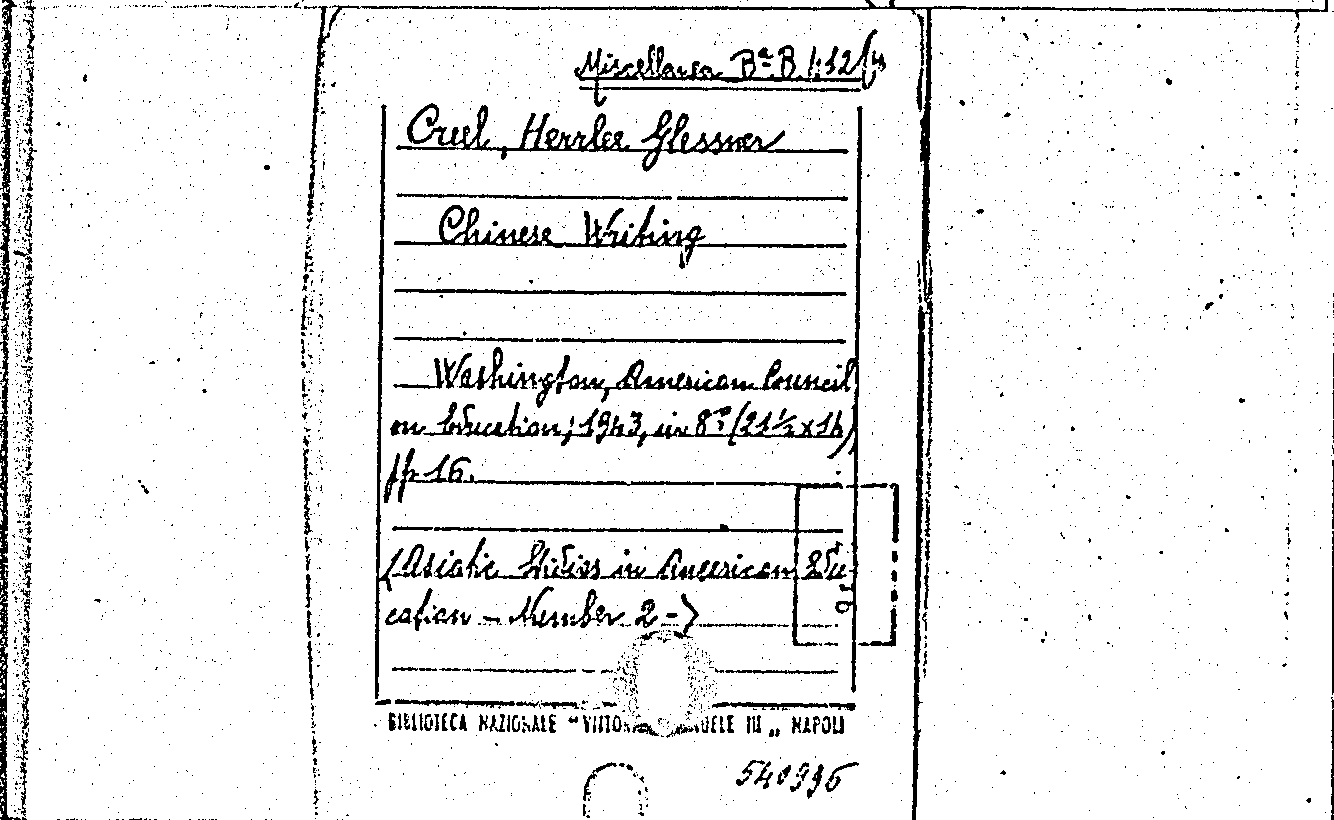 Miscellanea Bª B. 1:12/
Creel, Herrlee Glessner
Chinese Writing
Washington, American Council
on Education, 1943, in 8° (21½ x 14)
pp 16.
(Asiatic Studies in American Edu-
cation - Number 2 -)
BIBLIOTECA NAZIONALE "VITTOR UELE III„ NAPOLI
540996